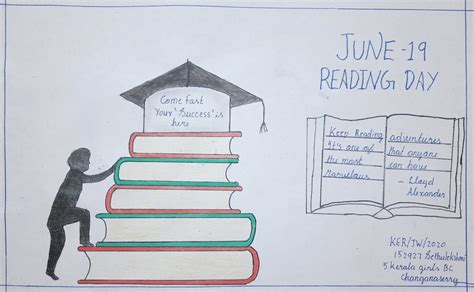 JUNE-19
READING DAY
Come fast
Your 'Success' is
here
Keep Reading
It's one of
the most
Marvelous
adventures
that anyone
can have
- Lloyd
Alexander
KER/JW/2020
152927 Sethulekshmi
5 Kerala girls BC
Changanaserry